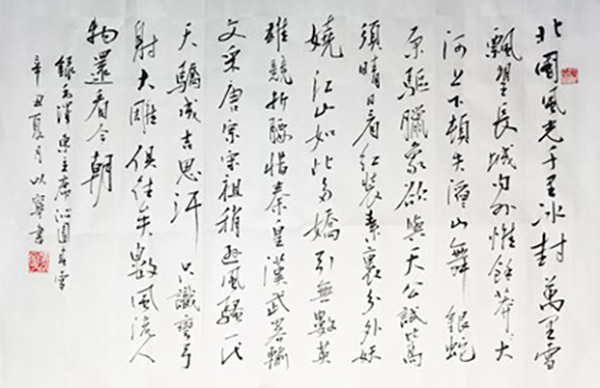 北國風光千里冰封萬里雪
飄望長城內外惟餘莽々大
河上下頓失滔山舞銀蛇
原驅臘象欲與天公試比高
須晴日看紅裝素裹分外妖
嬈江山如此多嬌引無數英
雄競折腰惜秦皇漢武略輸
文采唐宗宋祖稍遜風騷一代
天驕成吉思汗只識彎弓
射大雕俱往矣數風流人
物還看今朝
錄毛澤東主席沁園春雪
辛丑夏月以寧書